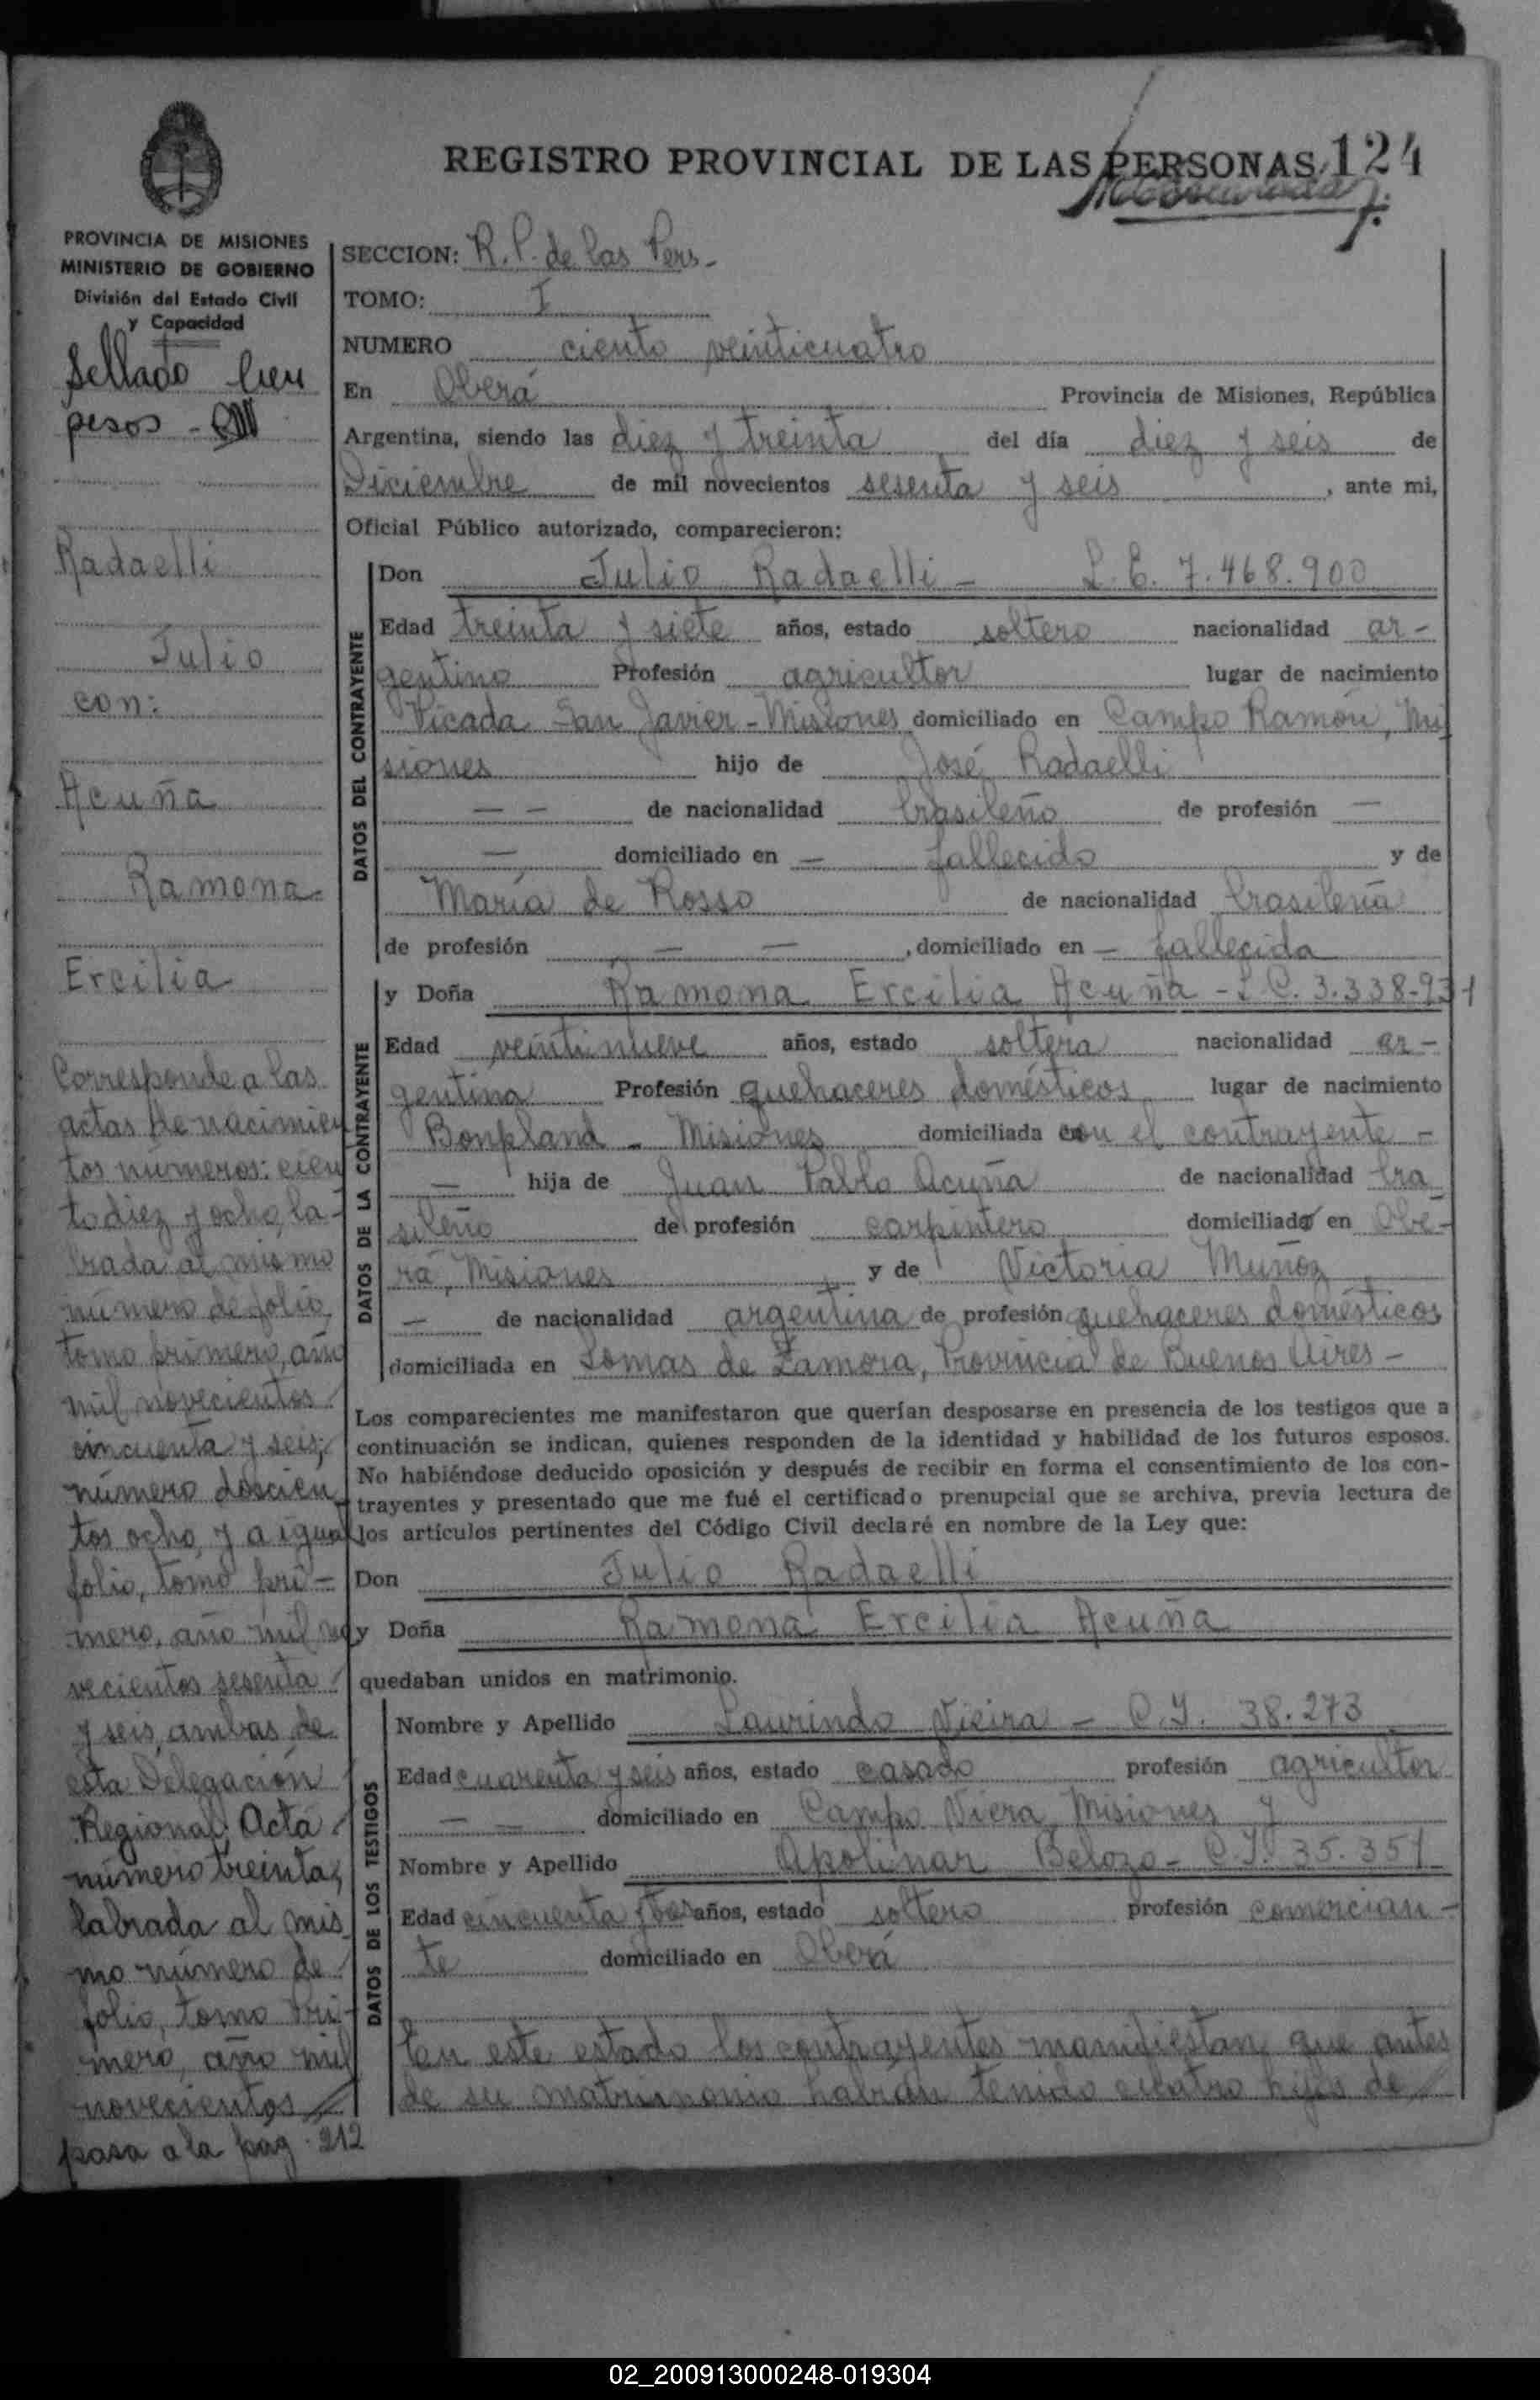 REGISTRO PROVINCIAL DE LAS PERSONAS 124
PROVINCIA DE MISIONES
MINISTERIO DE GOBIERNO
División del Estado Civil
y Capacidad
Sellado cien
pesos -
Radaelli
Julio
con:
Acuña
Ramona
Ercilia
Corresponde a las
actas de nacimien
tos números: cien
to diez y ocho, la-
brada al mismo
número de folio,
tomo primero, año
mil novecientos
cincuenta y seis;
número doscien
tos ocho, y a igual
folio, tomo pri-
mero, año mil no
vecientos sesenta
y seis, ambas de
esta Delegación
Regional, Acta
número treinta,
labrada al mis
mo número de
folio, tomo Pri-
mero, año mil
novecientos
pasa a la pág. 212
SECCION: R. P. de las Pers.
TOMO: I
NUMERO ciento veinticuatro
En Oberá Provincia de Misiones, República
Argentina, siendo las diez y treinta del día diez y seis de
Diciembre de mil novecientos sesenta y seis, ante mi,
Oficial Público autorizado, comparecieron:
DATOS DEL CONTRAYENTE
Don Julio Radaelli - L. E. 7.468.900
Edad treinta y siete años, estado soltero nacionalidad ar-
gentino Profesión agricultor lugar de nacimiento
Picada San Javier - Misiones domiciliado en Campo Ramón, Mi
siones hijo de José Radaelli
— — de nacionalidad brasileño de profesión —
— domiciliado en — fallecido y de
María de Rosso de nacionalidad brasileña
de profesión — —, domiciliado en — fallecida
DATOS DE LA CONTRAYENTE
y Doña Ramona Ercilia Acuña - L. C. 3.338.931
Edad veintinueve años, estado soltera nacionalidad ar-
gentina Profesión quehaceres domésticos lugar de nacimiento
Bonpland - Misiones domiciliada con el contrayente -
— hija de Juan Pablo Acuña de nacionalidad bra
sileño de profesión carpintero domiciliado en Obe-
rá, Misiones y de Victoria Muñoz
— de nacionalidad argentina de profesión quehaceres domésticos
domiciliada en Lomas de Zamora, Provincia de Buenos Aires -
Los comparecientes me manifestaron que querían desposarse en presencia de los testigos que a
continuación se indican, quienes responden de la identidad y habilidad de los futuros esposos.
No habiéndose deducido oposición y después de recibir en forma el consentimiento de los con-
trayentes y presentado que me fué el certificado prenupcial que se archiva, previa lectura de
los artículos pertinentes del Código Civil declaré en nombre de la Ley que:
Don Julio Radaelli
y Doña Ramona Ercilia Acuña
quedaban unidos en matrimonio.
DATOS DE LOS TESTIGOS
Nombre y Apellido Laurindo Vieira - C. I. 38.273
Edad cuarenta y seis años, estado casado profesión agricultor
— — domiciliado en Campo Viera, Misiones y
Nombre y Apellido Apolinar Belozo - C. I. 35.351
Edad cincuenta y años, estado soltero profesión comercian-
te domiciliado en Oberá
En este estado los contrayentes manifiestan que antes
de su matrimonio habían tenido cuatro hijos de
02_200913000248-019304